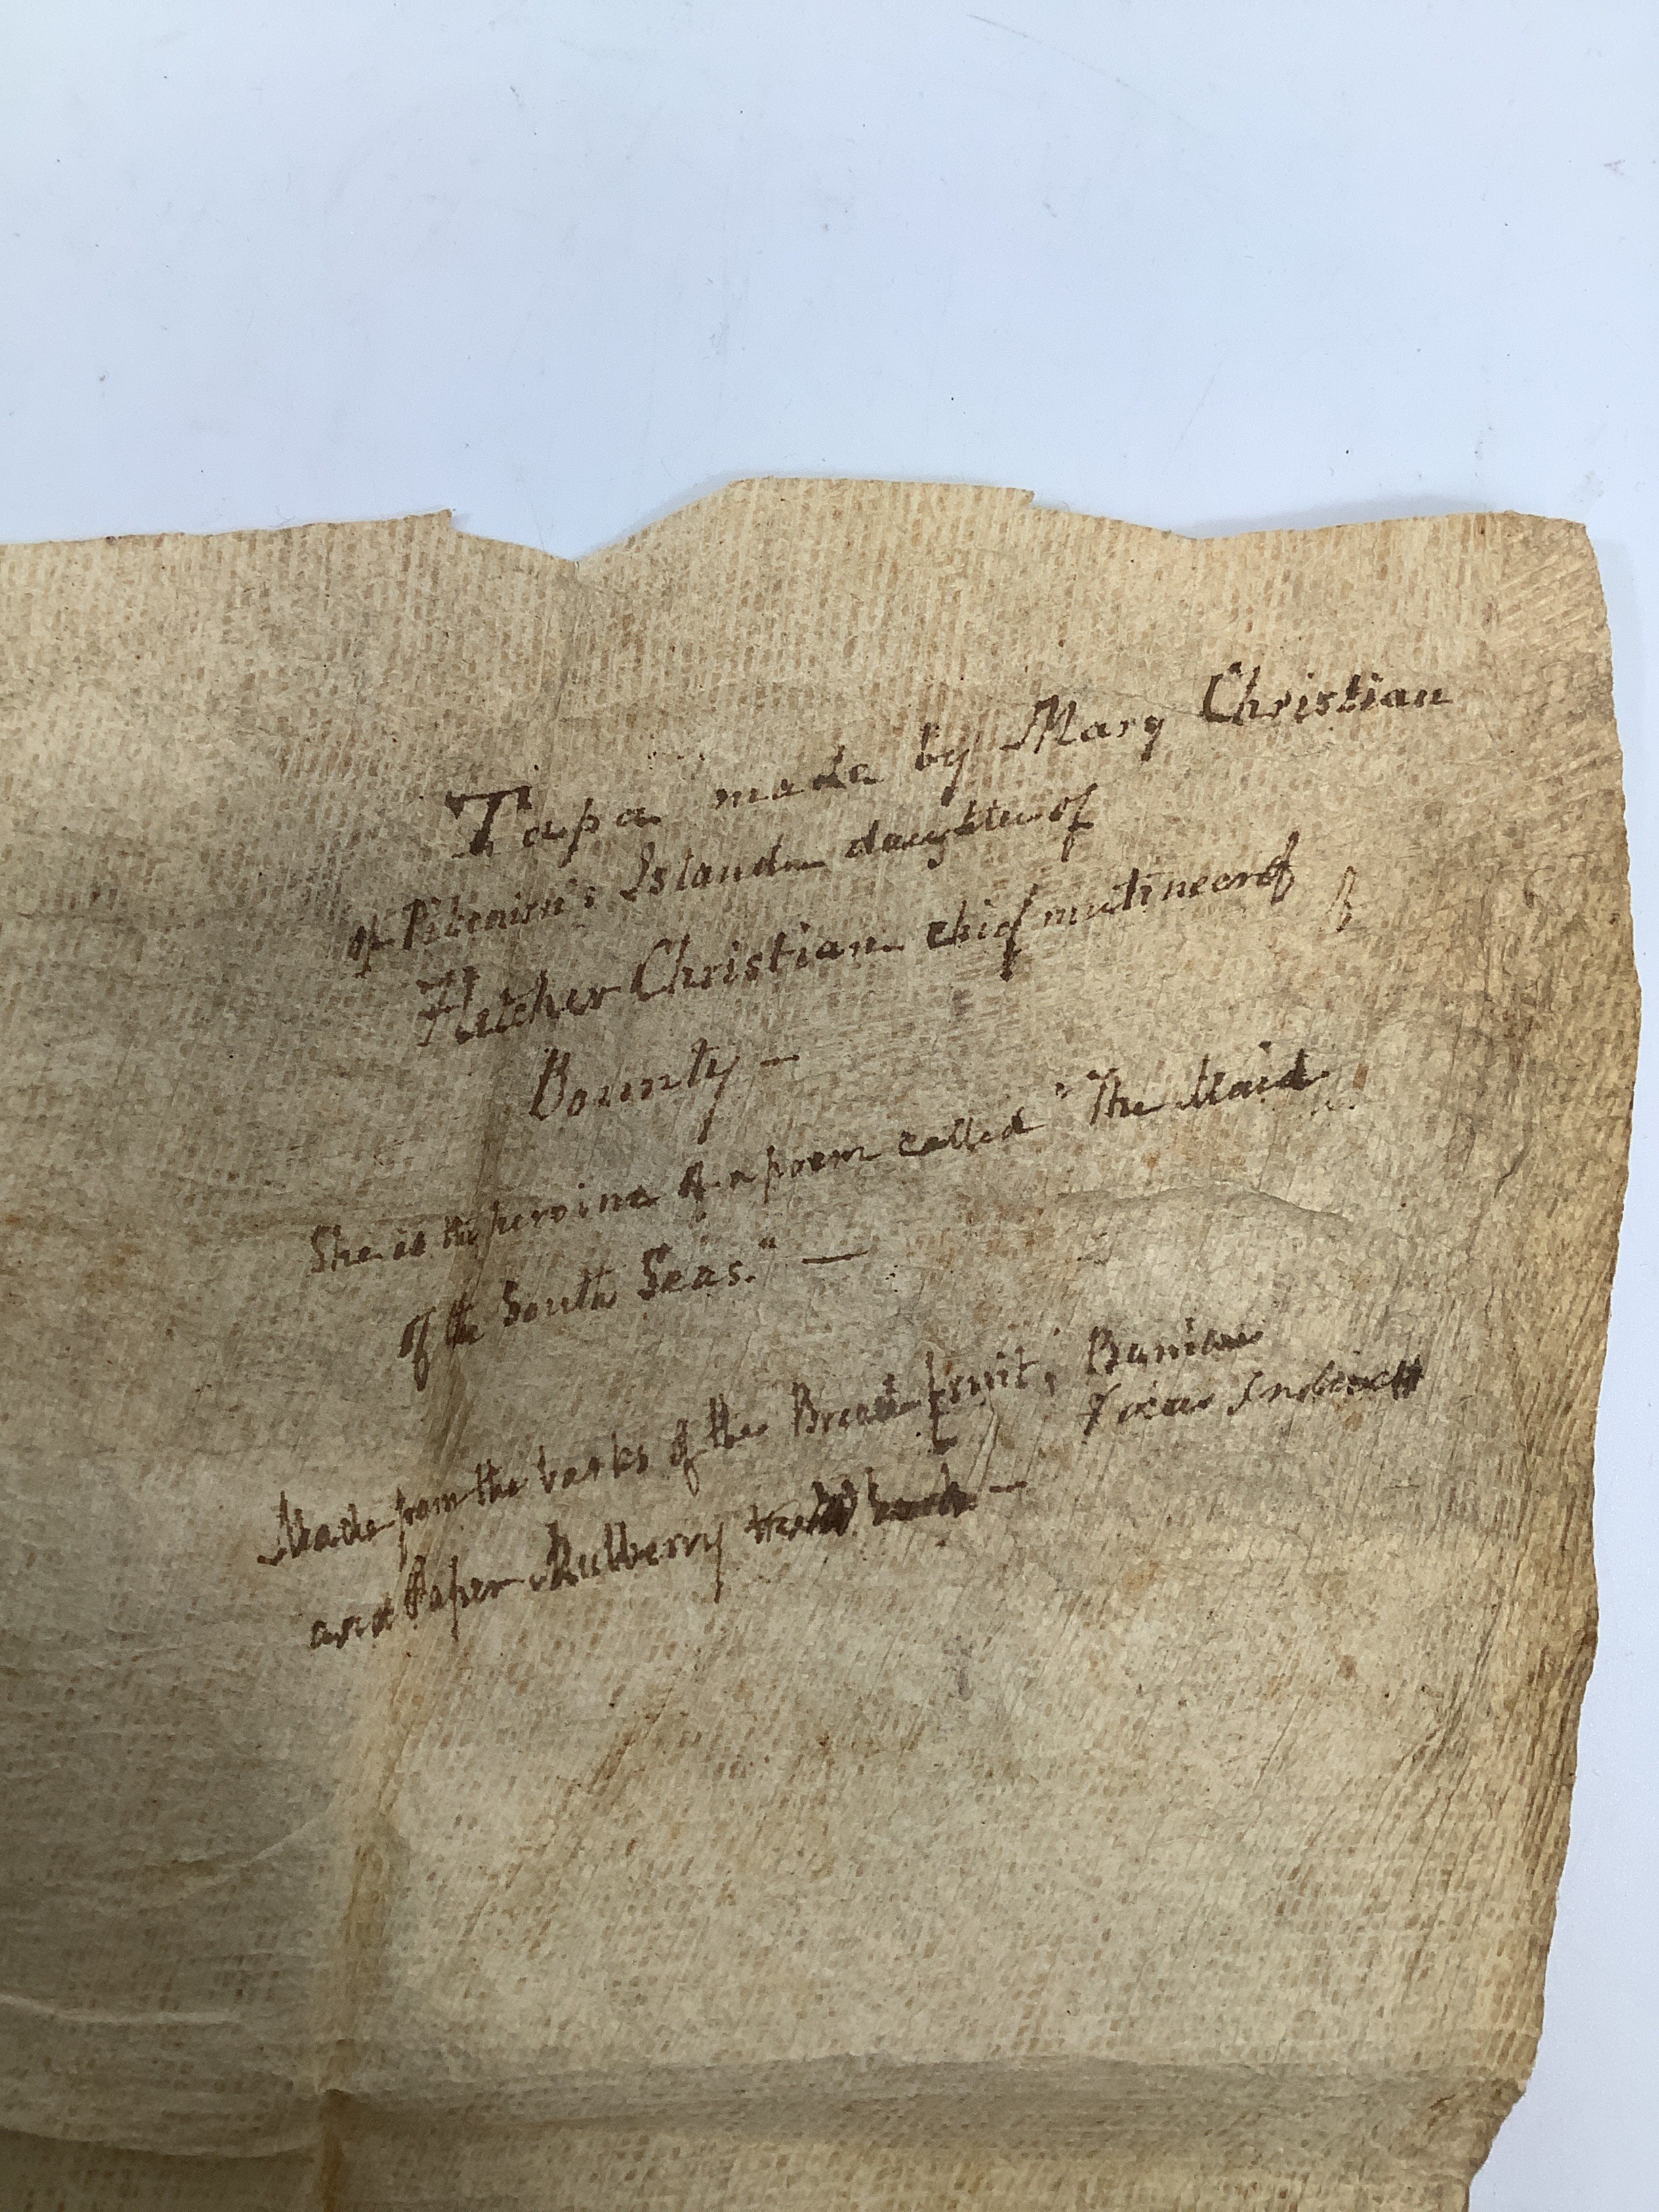 Tapa made by Mary Christian
of Pitcairn's Island daughter of
Fletcher Christian chief mutineer of
Bounty —
She is the heroine of a poem called "The Maid
of the South Seas." —
Made from the barks of the Bread fruit, Banian
Ficus Indicus
and Paper Mulberry —